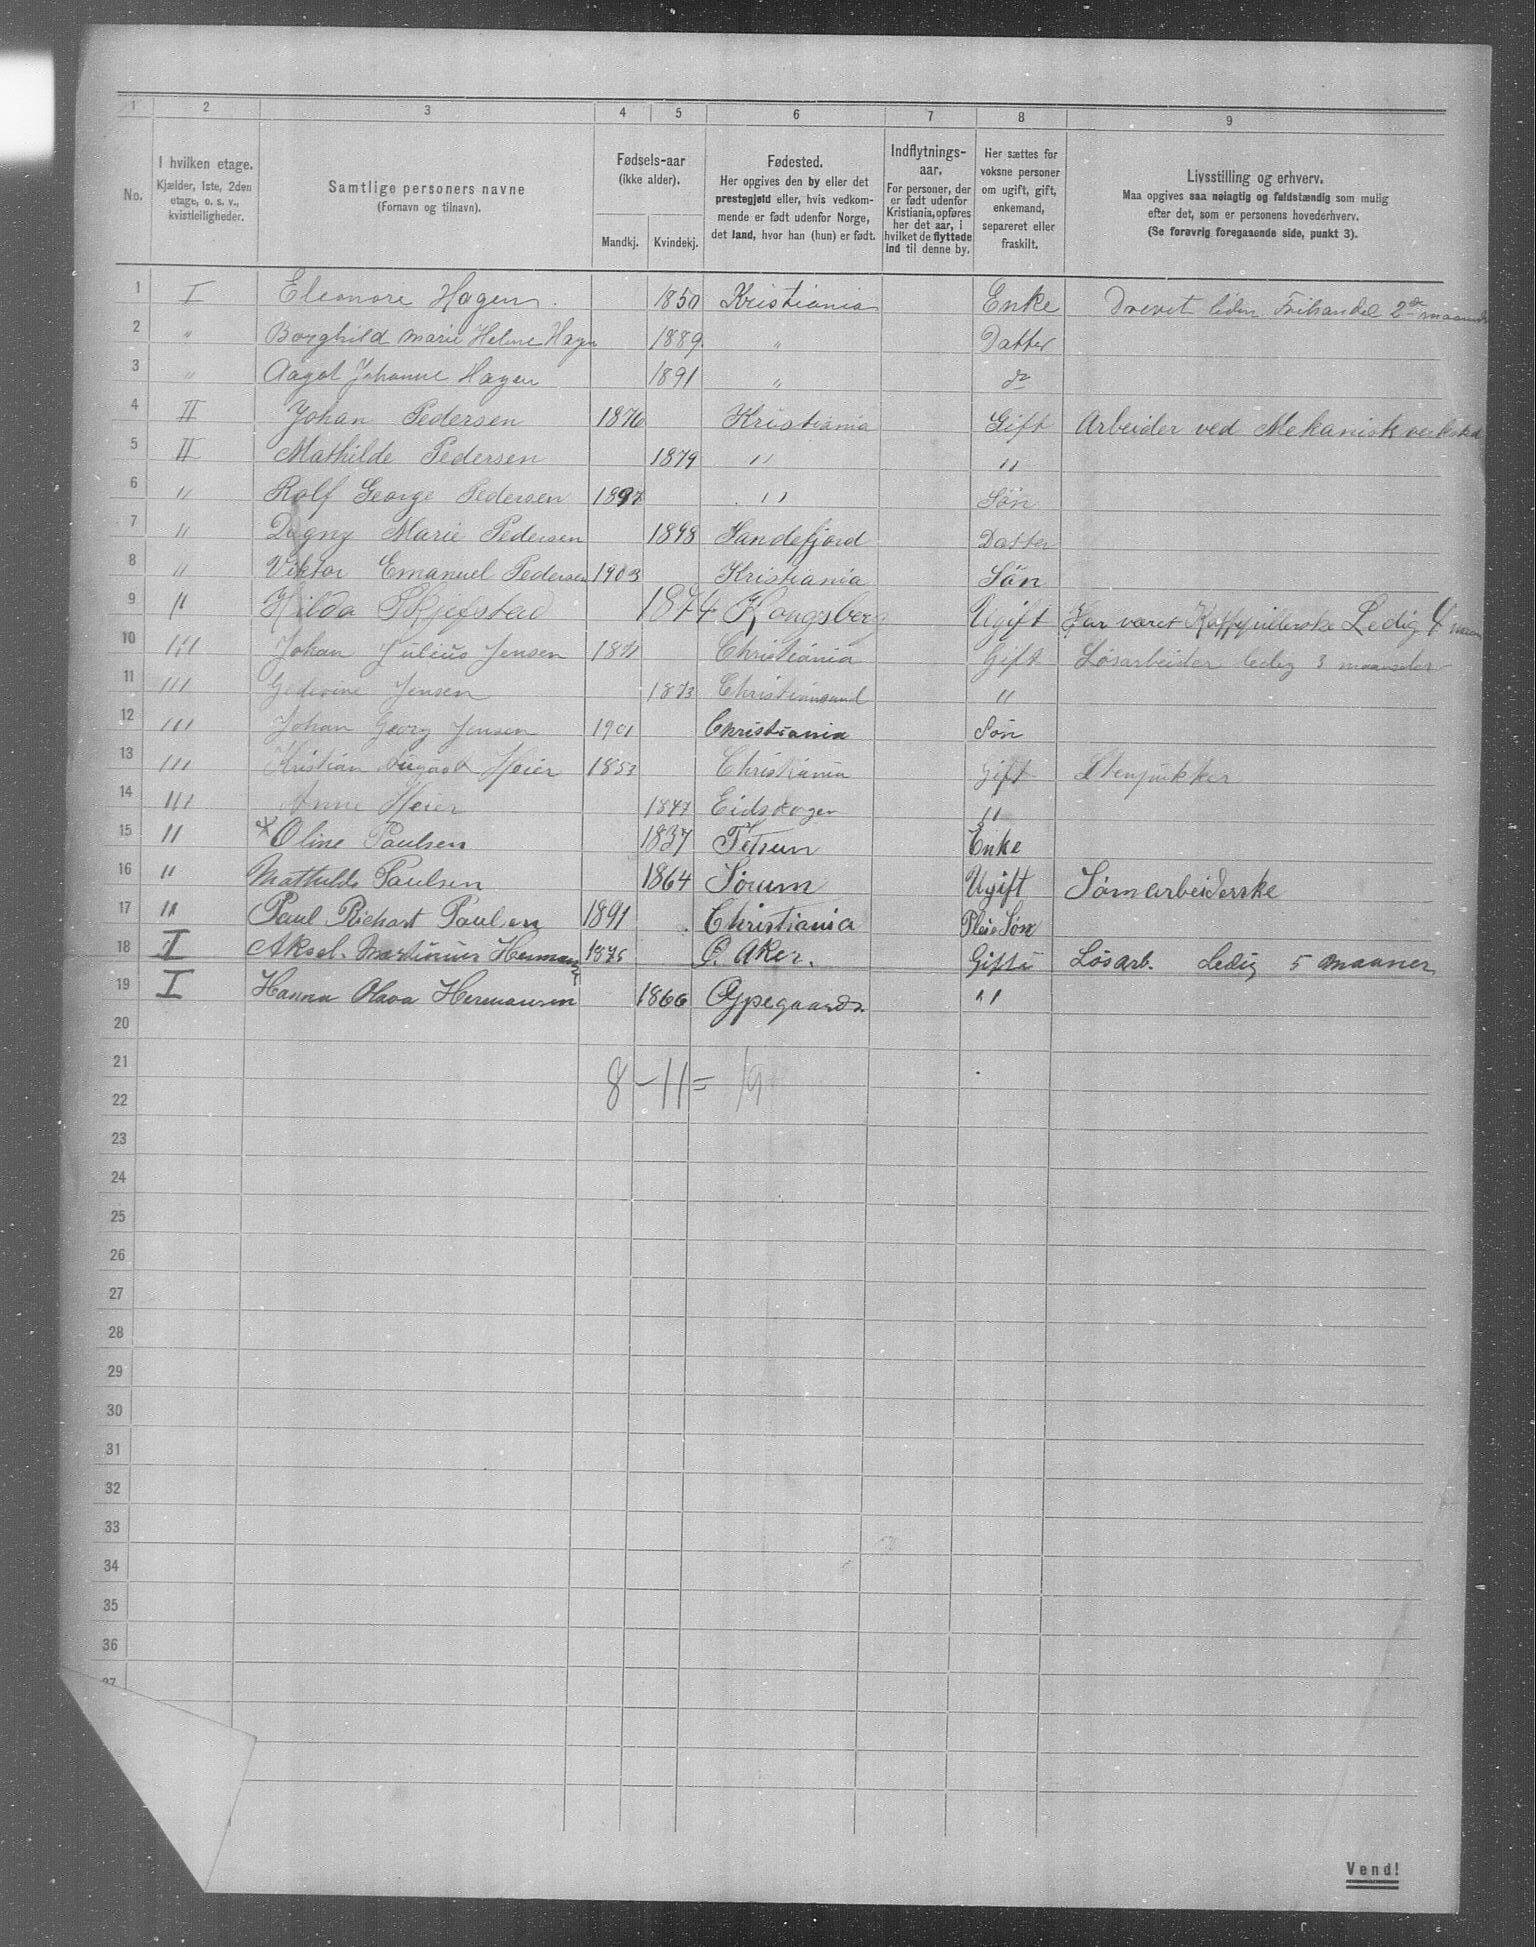 1 2 3 4 5 6 7 8 9
No.
I hvilken etage. Kjælder, 1ste, 2den etage, o. s. v., kvistleiligheder.
Samtlige personers navne (Fornavn og tilnavn).
Fødsels-aar (ikke alder).
Mandkj. Kvindekj.
Fødested. Her opgives den by eller det prestegjeld eller, hvis vedkommende er født udenfor Norge, det land, hvor han (hun) er født.
Indflytnings-aar. For personer, der er født udenfor Kristiania, opføres her det aar, i hvilket de flyttede ind til denne by.
Her sættes for voksne personer om ugift, gift, enkemand, separeret eller fraskilt.
Livsstilling og erhverv. Maa opgives saa nøiagtig og fuldstændig som mulig efter det, som er personens hovederhverv. (Se forøvrig foregaaende side, punkt 3).
1 I Eleonore Hagen. 1850 Kristiania Enke Drevet liden Frihandel 2de maaneder
2 " Borghild Marie Helene Hagen 1889 " Datter
3 " Aagot Johanne Hagen 1891 " do
4 II Johan Pedersen 1876 Kristiania Gift Arbeider ved Mekanisk verksted
5 II Mathilde Pedersen 1879 " "
6 " Rolf George Pedersen 1897 " Søn
7 " Dagny Marie Pedersen 1898 Sandefjord Datter
8 " Viktor Emanuel Pedersen 1903 Kristiania Søn
9 " Hilda Skjefstad 1874 Kongsberg Ugift Har været Kaffepillerske Ledig 4 maan
10 III Johan Julius Jensen 1871 Christiania Gift Løsarbeider ledig 3 maaneder
11 III Jensen 1873 Christiansund "
12 III Johan Georg Jensen 1901 Christiania Søn
13 III Kristian August Heier 1853 Christiania Gift Stenpukker
14 III Anne Heier 1847 Eidskogen "
15 II * Oline Paulsen 1837 Fetsun Enke
16 " Mathilde Paulsen 1864 Sørum Ugift Sømarbeiderske
17 II Paul Richart Paulsen 1891 Christiania Pleie Søn
18 I Aksel. Martinius Hermansen 1875 Ø. Aker. Gift Løsarb. Ledig 5 maaner
19 I Hanna Olava Hermansen 1866 Oppegaard "
20
21
8 - 11 = 19
22
23
24
25
26
27
28
29
30
31
32
33
34
35
36
37
Vend!